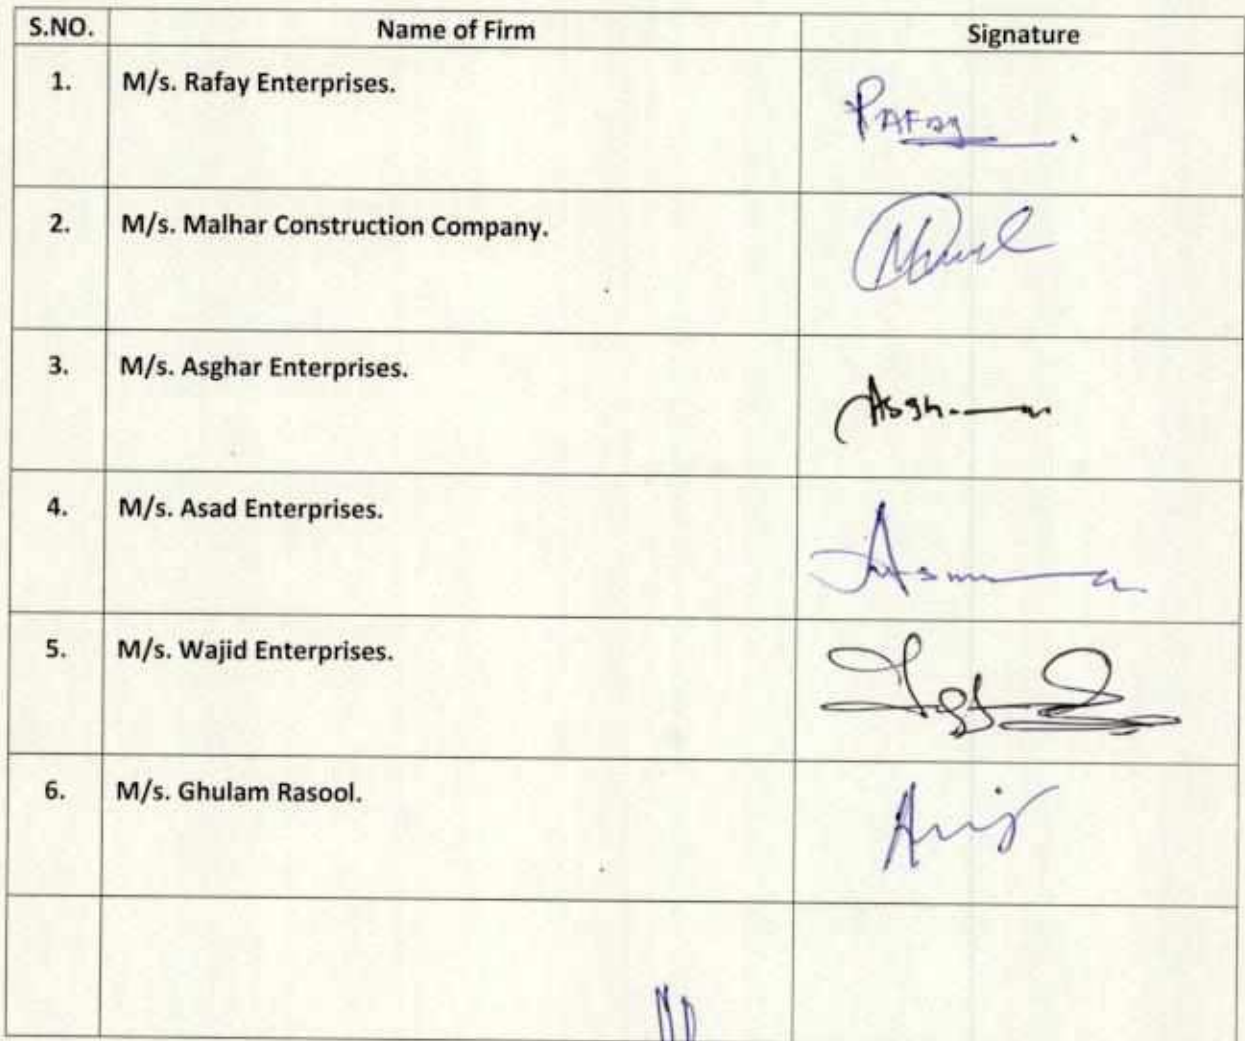 S.NO. Name of Firm Signature
1. M/s. Rafay Enterprises. RAFay
2. M/s. Malhar Construction Company.
3. M/s. Asghar Enterprises.
4. M/s. Asad Enterprises.
5. M/s. Wajid Enterprises.
6. M/s. Ghulam Rasool.